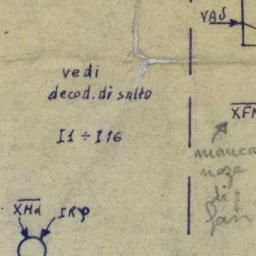 VAS
vedi
decod. di salto
I1 ÷ I16
XFM
manca
di
XMd IRφ